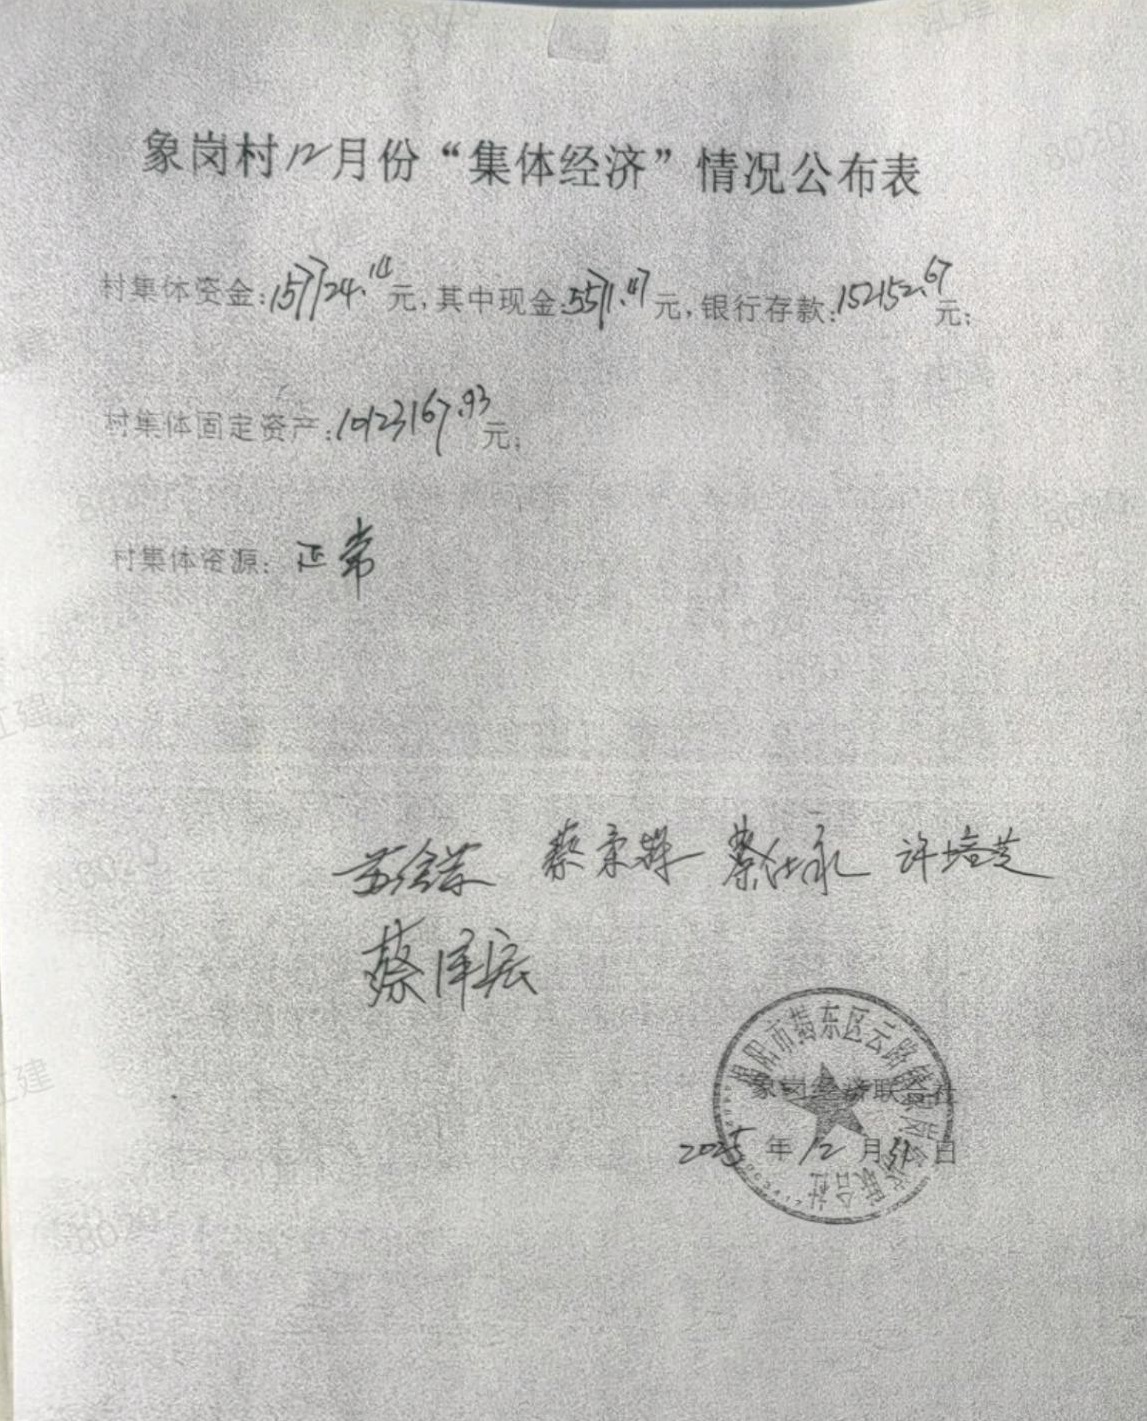 象岗村12月份“集体经济”情况公布表
村集体资金:157724.14元,其中现金:5571.47元,银行存款:152152.67元;
村集体固定资产:10123167.93元;
村集体资源:正常
蔡荣辉 蔡仕永 许培芝
蔡泽宏
揭阳市揭东区云路镇象岗经济联合社
象岗经济联合社
2025年12月31日
8020
8020
8020